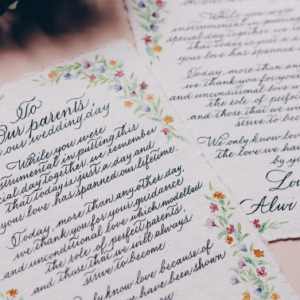 To
Our parents,
our wedding day
While you were
instrumental in putting this
special day together we remember
that today is just a day and
your love has spanned our lifetime.
Today, more than any other day,
we thank you for your guidance
and unconditional love which modelled
the role of perfect parents,
and those that we will always
strive to become
only know love because of
have been shown
While you were
instrumental in putting
special day together we
that today is just a
your love has spanned
Today, more than any
we thank you for your
and unconditional love
the role of perfect
and those that we
strive to become
We only know love
the love we have
by you
Lo